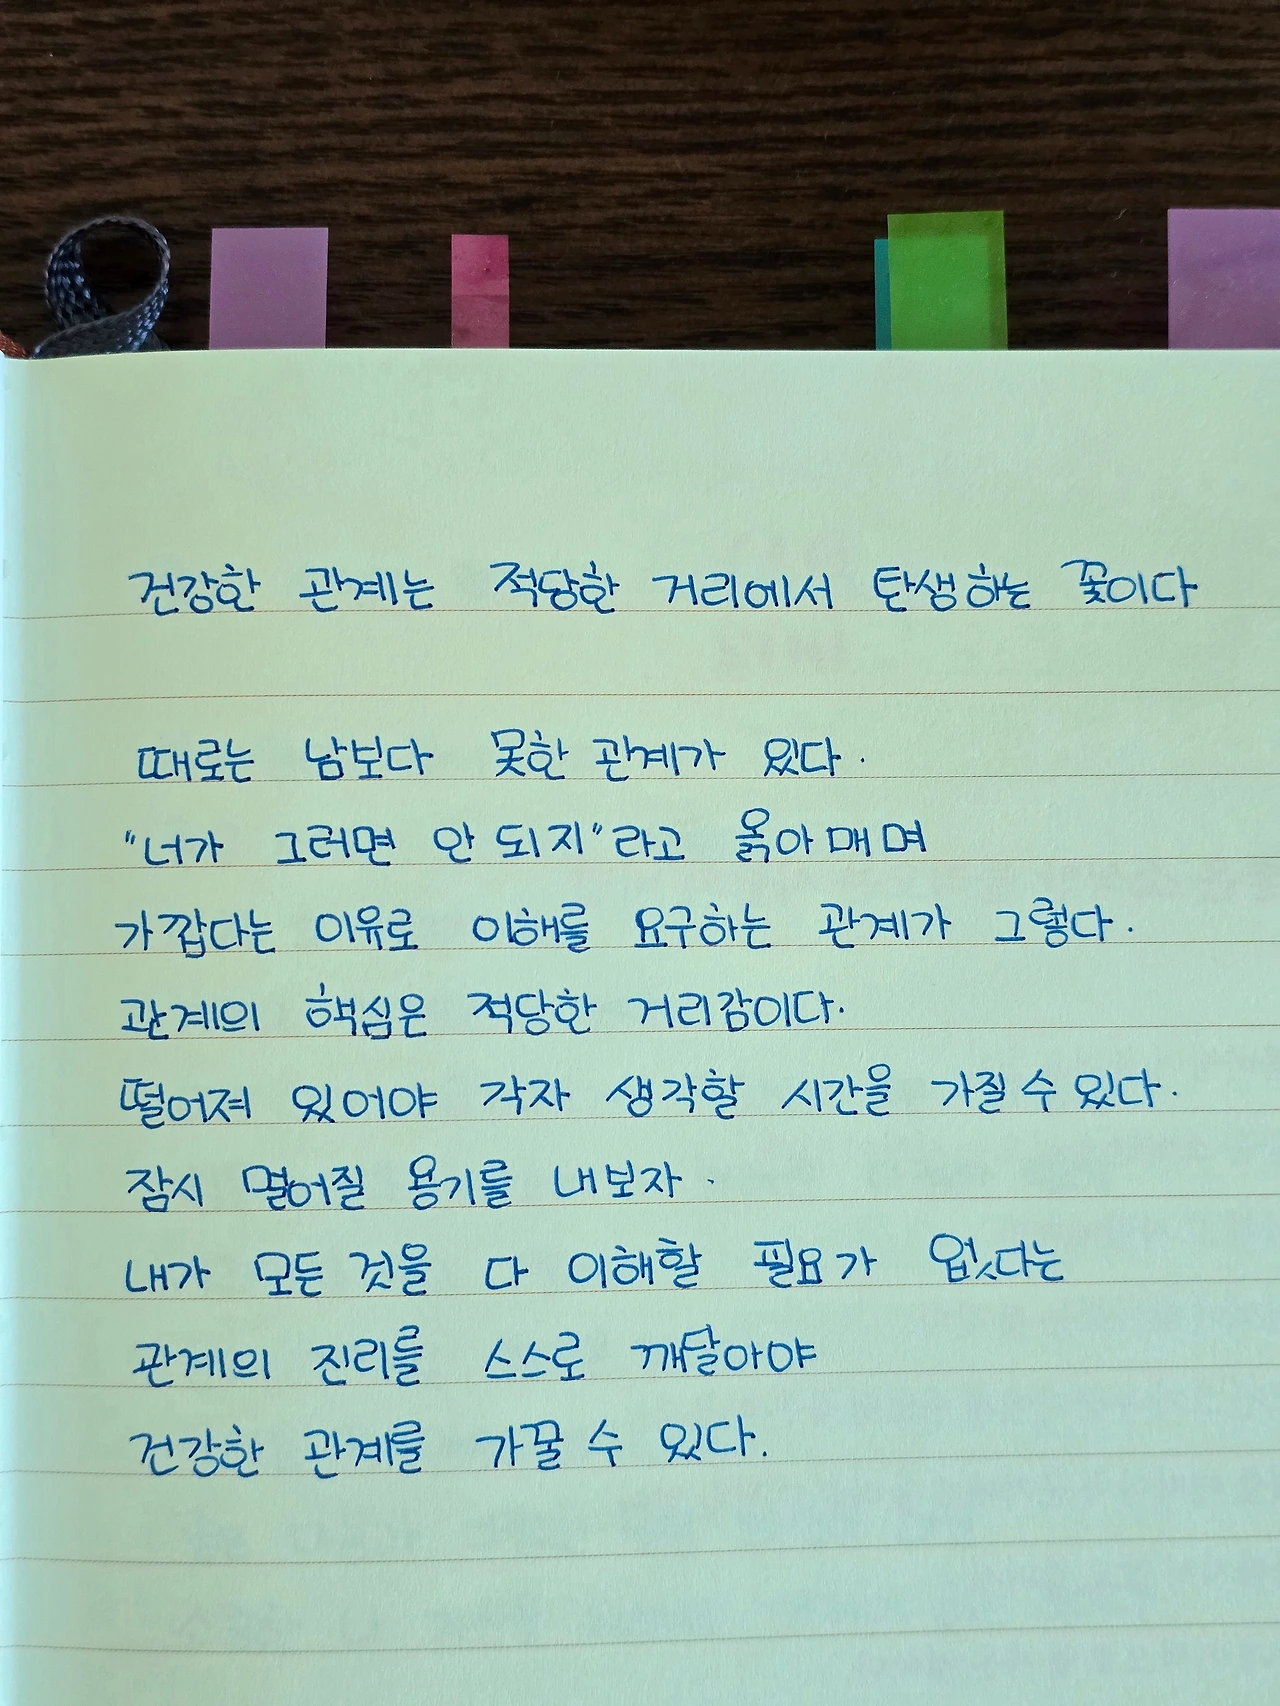 건강한 관계는 적당한 거리에서 탄생하는 꽃이다
때로는 남보다 못한 관계가 있다.
"너가 그러면 안 되지"라고 옭아매며
가깝다는 이유로 이해를 요구하는 관계가 그렇다.
관계의 핵심은 적당한 거리감이다.
떨어져 있어야 각자 생각할 시간을 가질 수 있다.
잠시 멀어질 용기를 내보자.
내가 모든 것을 다 이해할 필요가 없다는
관계의 진리를 스스로 깨달아야
건강한 관계를 가꿀 수 있다.